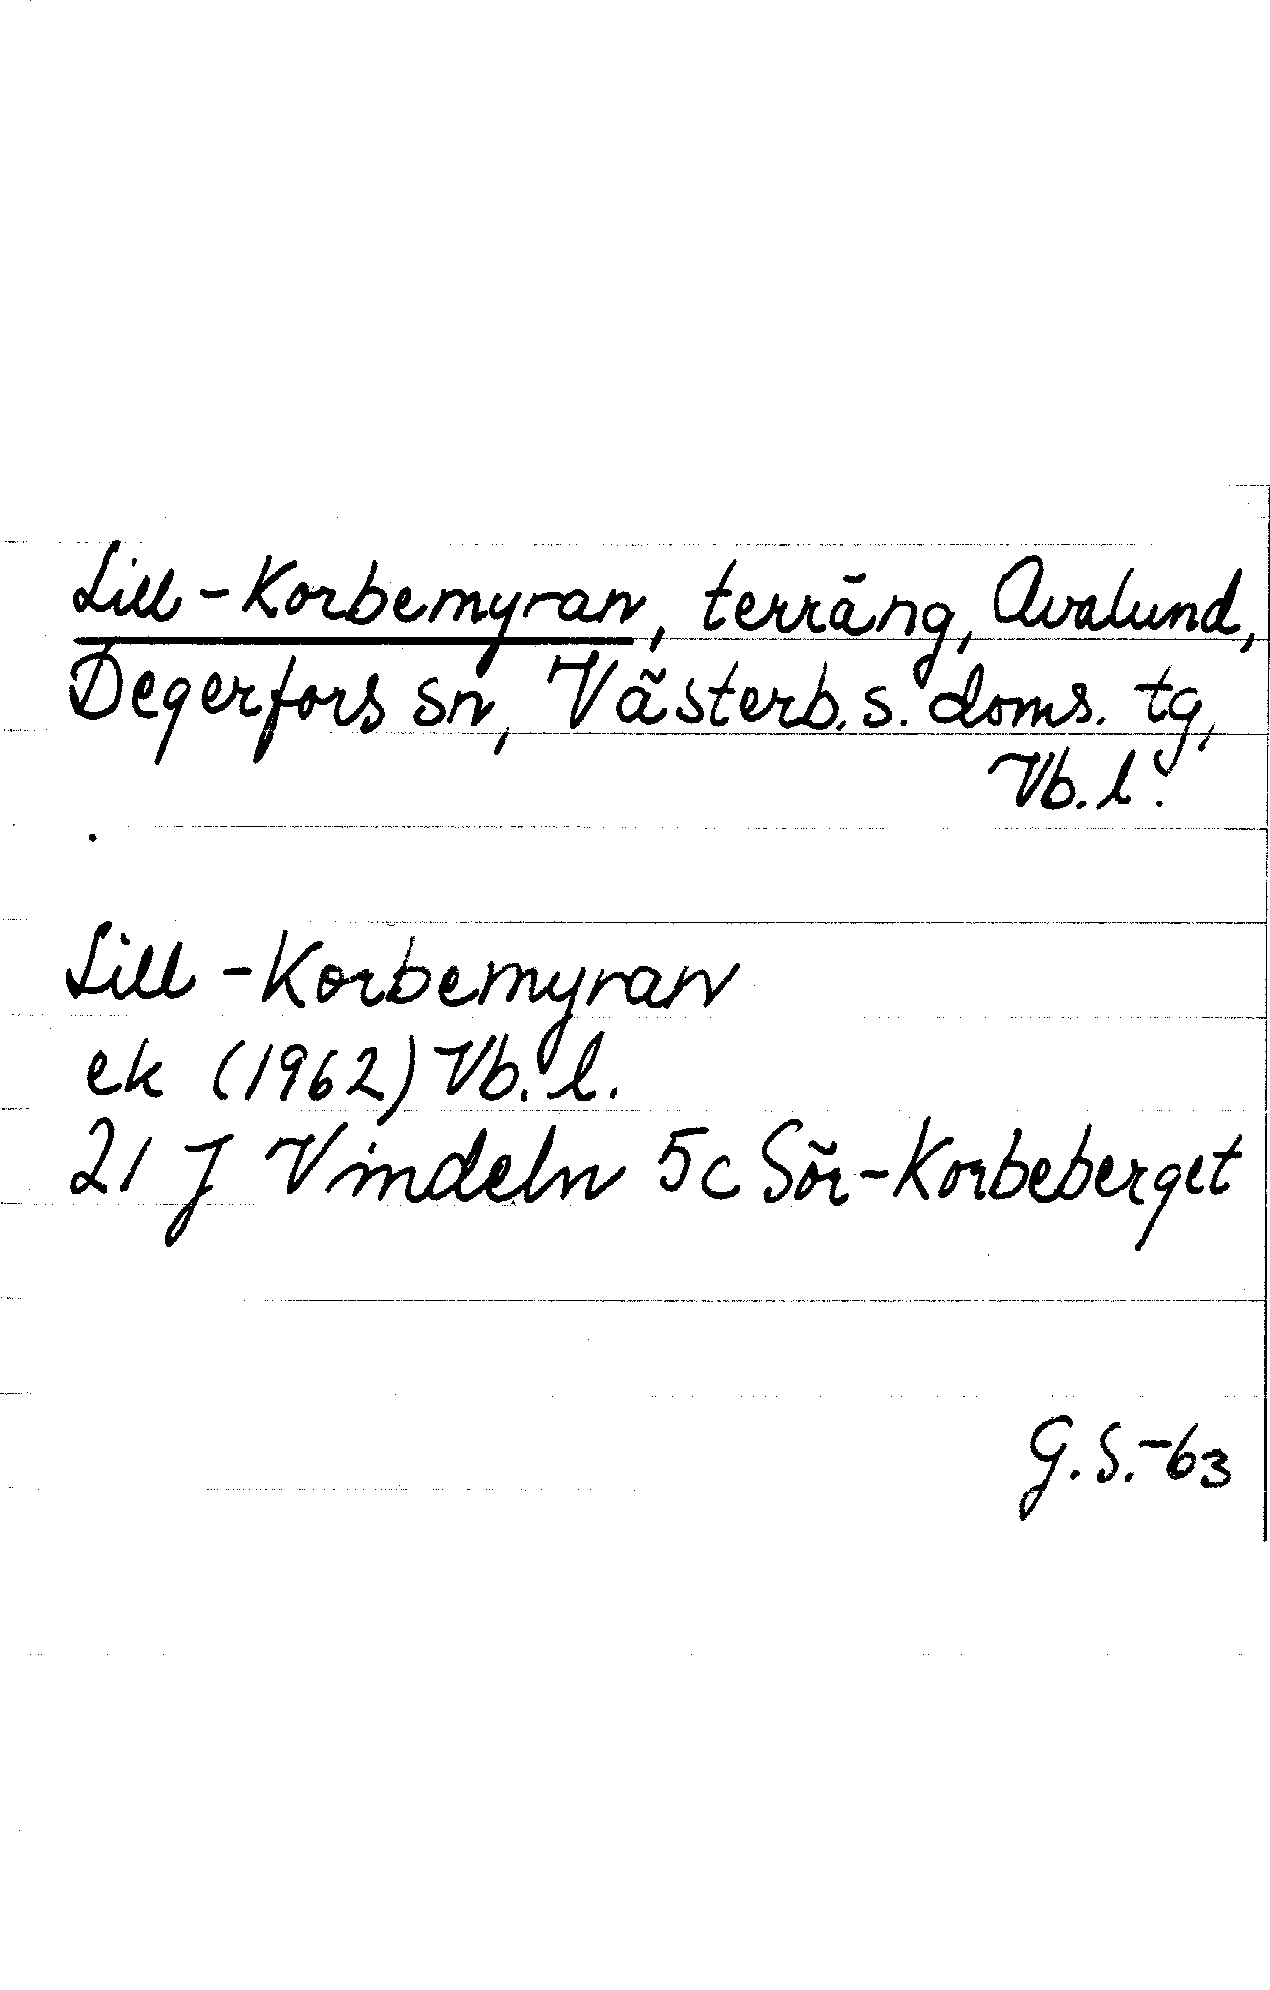 Lill-Korbemyran, terräng, Avalund,
Degerfors sn, Västerb. s. doms. tg,
Vb. l.
Lill-Korbemyran
ek (1962) Vb. l.
21 J Vindeln 5c Sör-Korbeberget
G.S.-63